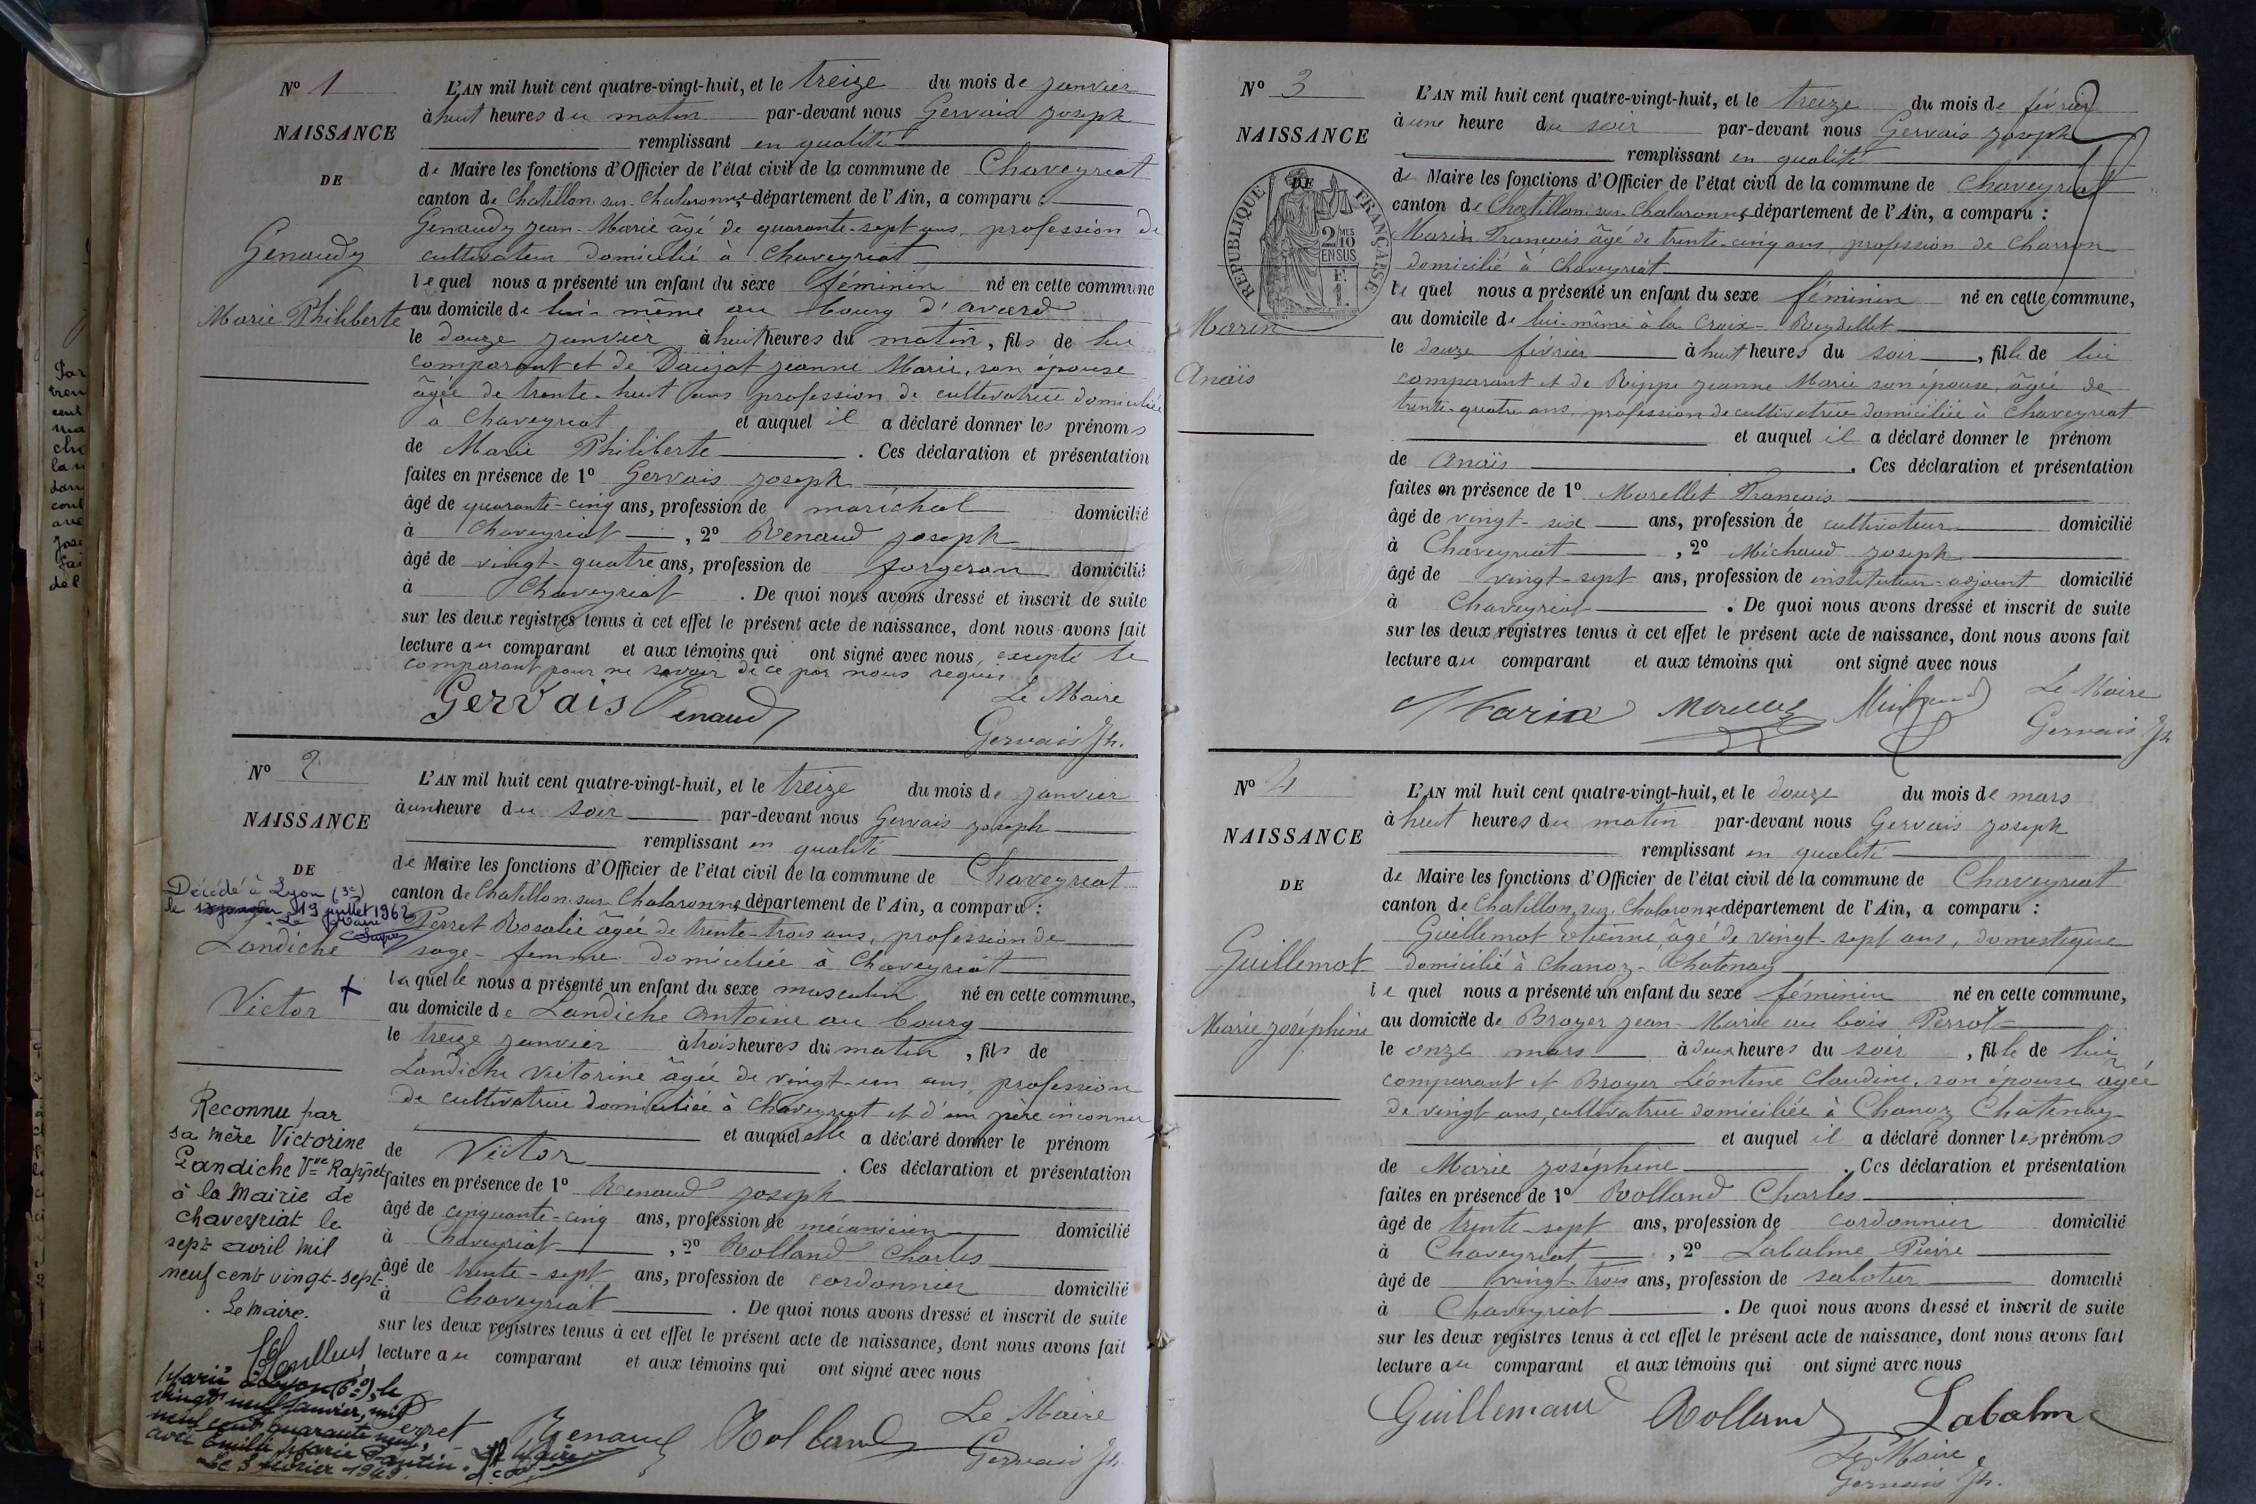 N° 1
NAISSANCE
DE
Genaudy
Marie Philiberte
L'AN mil huit cent quatre-vingt-huit, et le treize du mois de janvier
à huit heures du matin par-devant nous Gervais Joseph
remplissant en qualité
de Maire les fonctions d'Officier de l'état civil de la commune de Chaveyriat
canton de Chatillon-sur-Chalaronne, département de l'Ain, a comparu :
Genaudy Jean-Marie âgé de quarante-sept ans, profession de
cultivateur domicilié à Chaveyriat
lequel nous a présenté un enfant du sexe féminin né en cette commune
au domicile de lui-même au bourg d'
le douze janvier à huit heures du matin, fils de lui
comparant et de Jeanne Marie, son épouse
âgée de trente-huit ans profession de cultivatrice domiciliée
à Chaveyriat et auquel il a déclaré donner les prénoms
de Marie Philiberte . Ces déclaration et présentation
faites en présence de 1° Gervais Joseph
âgé de quarante-cinq ans, profession de maréchal domicilié
à Chaveyriat , 2° Renaud Joseph
âgé de vingt-quatre ans, profession de forgeron domicilié
à Chaveyriat . De quoi nous avons dressé et inscrit de suite
sur les deux registres tenus à cet effet le présent acte de naissance, dont nous avons fait
lecture au comparant et aux témoins qui ont signé avec nous, excepté le
comparant pour ne savoir de ce par nous requis
Gervais Renaud Le Maire
Gervais Jh.
N° 2
NAISSANCE
DE
Décédé à Lyon (3e)
le 19 juillet 1962
Le Maire
Landiche
Victor +
Reconnu par
sa mère Victorine
Landiche Vve
à la Mairie de
chaveyriat le
sept avril mil
neuf cent vingt-sept
Le maire.
Marié à Lyon (6e), le
vingt neuf janvier, mil
neuf cent quarante neuf,
avec Emilie Marie Pantin.
Le 3 février 1949.
L'AN mil huit cent quatre-vingt-huit, et le treize du mois de janvier
à une heure du soir par-devant nous Gervais Joseph
remplissant en qualité
de Maire les fonctions d'Officier de l'état civil de la commune de Chaveyriat
canton de Chatillon-sur-Chalaronne, département de l'Ain, a comparu :
Perret Rosalie âgée de trente-trois ans, profession de
sage-femme domiciliée à Chaveyriat
laquelle nous a présenté un enfant du sexe masculin né en cette commune,
au domicile de Landiche Antoine au bourg
le treize janvier à trois heures du matin , fils de
Landiche Victorine âgée de vingt-un ans, profession
de cultivatrice domiciliée à Chaveyriat et d'un père inconnu
et auquel elle a déclaré donner le prénom
de Victor . Ces déclaration et présentation
faites en présence de 1° Renaud Joseph
âgé de cinquante-cinq ans, profession de mécanicien domicilié
à Chaveyriat , 2° Rolland Charles
âgé de trente-sept ans, profession de cordonnier domicilié
à Chaveyriat . De quoi nous avons dressé et inscrit de suite
sur les deux registres tenus à cet effet le présent acte de naissance, dont nous avons fait
lecture au comparant et aux témoins qui ont signé avec nous
Perret Renaud Rolland Le Maire
Gervais Jh.
N° 3
NAISSANCE
DE
RÉPUBLIQUE FRANÇAISE
2/10 MES
EN SUS
Marin
Anaïs
L'AN mil huit cent quatre-vingt-huit, et le treize du mois de février
à une heure du soir par-devant nous Gervais Joseph
remplissant en qualité
de Maire les fonctions d'Officier de l'état civil de la commune de Chaveyriat
canton de Chatillon-sur-Chalaronne, département de l'Ain, a comparu :
Marin François âgé de trente-cinq ans, profession de Charron
domicilié à Chaveyriat
lequel nous a présenté un enfant du sexe féminin né en cette commune,
au domicile de lui-même à la Croix-
le douze février à huit heures du soir , fille de lui
comparant et de Rippe Jeanne Marie son épouse, âgée de
trente-quatre ans, profession de cultivatrice domiciliée à Chaveyriat
et auquel il a déclaré donner le prénom
de Anaïs . Ces déclaration et présentation
faites en présence de 1° Morellet François
âgé de vingt-six ans, profession de cultivateur domicilié
à Chaveyriat , 2° Michaud Joseph
âgé de vingt-sept ans, profession de instituteur-adjoint domicilié
à Chaveyriat . De quoi nous avons dressé et inscrit de suite
sur les deux registres tenus à cet effet le présent acte de naissance, dont nous avons fait
lecture au comparant et aux témoins qui ont signé avec nous
Marin Morellet Michaud Le Maire
Gervais Jh
N° 4
NAISSANCE
DE
Guillemot
Marie Joséphine
L'AN mil huit cent quatre-vingt-huit, et le douze du mois de mars
à huit heures du matin par-devant nous Gervais Joseph
remplissant en qualité
de Maire les fonctions d'Officier de l'état civil de la commune de Chaveyriat
canton de Chatillon-sur-Chalaronne, département de l'Ain, a comparu :
Guillemot Etienne, âgé de vingt-sept ans, domestique
domicilié à Chanoz-Chatenay
lequel nous a présenté un enfant du sexe féminin né en cette commune,
au domicile de Broyer Jean-Marie au bois Perrot
le onze mars à deux heures du soir , fille de lui
comparant et Broyer Léontine Claudine, son épouse âgée
de vingt ans, cultivatrice domiciliée à Chanoz Chatenay
et auquel il a déclaré donner les prénoms
de Marie Joséphine . Ces déclaration et présentation
faites en présence de 1° Rolland Charles
âgé de trente-sept ans, profession de cordonnier domicilié
à Chaveyriat , 2° Labalme Pierre
âgé de vingt-trois ans, profession de sabotier domicilié
à Chaveyriat . De quoi nous avons dressé et inscrit de suite
sur les deux registres tenus à cet effet le présent acte de naissance, dont nous avons fait
lecture au comparant et aux témoins qui ont signé avec nous
Guillemaud Rolland Labalme
Le Maire
Gervais Jh.